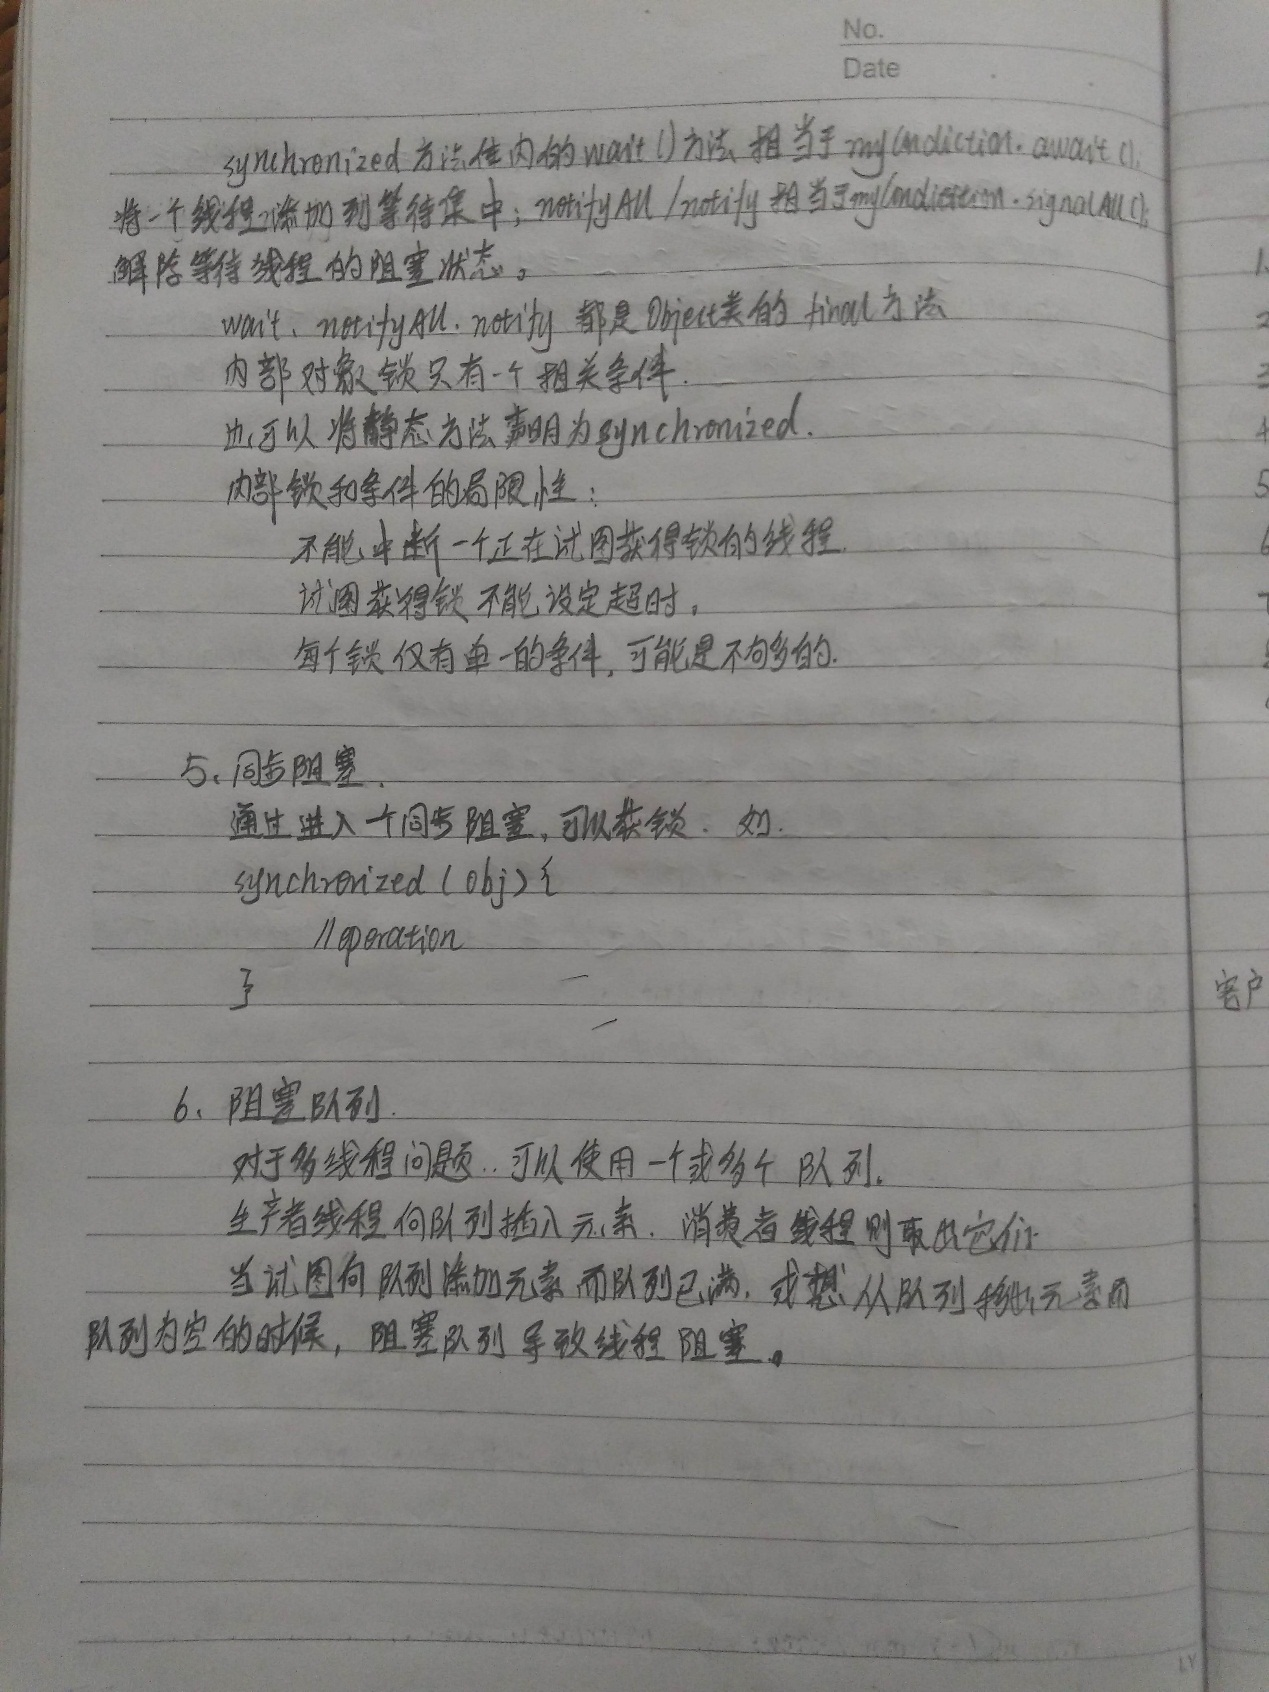 No.
Date
synchronized方法体内的wait()方法相当于myCondiction.await();
将一个线程添加到等待集中；notifyAll/notify相当于myCondiction.signalAll();
解除等待线程的阻塞状态。
wait、notifyAll、notify都是Object类的final方法
内部对象锁只有一个相关条件.
也可以将静态方法声明为synchronized.
内部锁和条件的局限性：
不能中断一个正在试图获得锁的线程.
试图获得锁不能设定超时。
每个锁仅有单一的条件,可能是不够的.
5、同步阻塞.
通过进入一个同步阻塞,可以获锁. 如.
synchronized(obj){
//operation
}
6、阻塞队列.
对于多线程问题..可以使用一个或多个队列.
生产者线程向队列插入元素.消费者线程则取出它们
当试图向队列添加元素而队列已满.或想从队列移出元素而
队列为空的时候,阻塞队列导致线程阻塞。
1.
2
3
4
5
6
7
客户